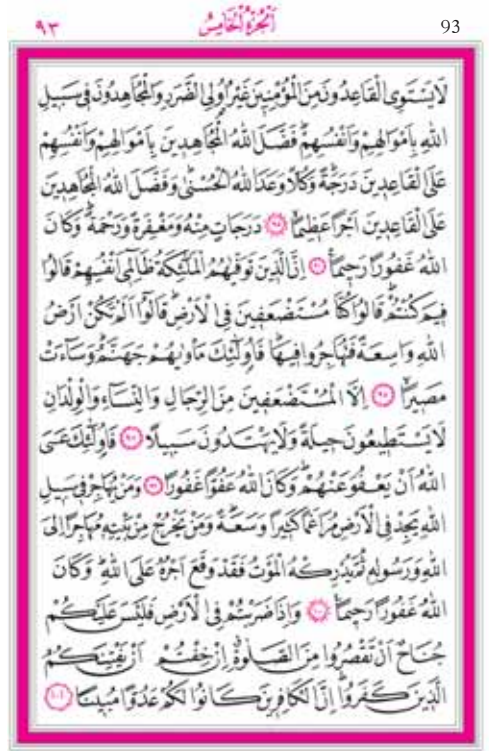 ٩٣ اَلْجُزْءُ الْخَامِسُ 93
لَا يَسْتَوِى الْقَاعِدُونَ مِنَ الْمُؤْمِنِينَ غَيْرُ اُو۬لِى الضَّرَرِ وَالْمُجَاهِدُونَ فِى سَبِيلِ
اللّٰهِ بِاَمْوَالِهِمْ وَاَنْفُسِهِمْۜ فَضَّلَ اللّٰهُ الْمُجَاهِدِينَ بِاَمْوَالِهِمْ وَاَنْفُسِهِمْ
عَلَى الْقَاعِدِينَ دَرَجَةًۜ وَكُلًّا وَعَدَ اللّٰهُ الْحُسْنٰىۜ وَفَضَّلَ اللّٰهُ الْمُجَاهِدِينَ
عَلَى الْقَاعِدِينَ اَجْرًا عَظِيمًاۙ ﴿٩٥﴾ دَرَجَاتٍ مِنْهُ وَمَغْفِرَةً وَرَحْمَةًۜ وَكَانَ
اللّٰهُ غَفُورًا رَحِيمًا۟ ﴿٩٦﴾ اِنَّ الَّذِينَ تَوَفّٰيهُمُ الْمَلٰٓئِكَةُ ظَالِمِٓى اَنْفُسِهِمْ قَالُوا
فِيمَ كُنْتُمْۜ قَالُوا كُنَّا مُسْتَضْعَفِينَ فِى الْاَرْضِۜ قَالُٓوا اَلَمْ تَكُنْ اَرْضُ
اللّٰهِ وَاسِعَةً فَتُهَاجِرُوا فِيهَاۜ فَاُو۬لٰٓئِكَ مَاْوٰيهُمْ جَهَنَّمُۜ وَسَٓاءَتْ
مَصِيرًاۙ ﴿٩٧﴾ اِلَّا الْمُسْتَضْعَفِينَ مِنَ الرِّجَالِ وَالنِّسَٓاءِ وَالْوِلْدَانِ
لَا يَسْتَطِيعُونَ حِيلَةً وَلَا يَهْتَدُونَ سَبِيلًاۙ ﴿٩٨﴾ فَاُو۬لٰٓئِكَ عَسَى
اللّٰهُ اَنْ يَعْفُوَ عَنْهُمْۜ وَكَانَ اللّٰهُ عَفُوًّا غَفُورًا ﴿٩٩﴾ وَمَنْ يُهَاجِرْ فِى سَبِيلِ
اللّٰهِ يَجِدْ فِى الْاَرْضِ مُرَاغَمًا كَثِيرًا وَسَعَةًۜ وَمَنْ يَخْرُجْ مِنْ بَيْتِهِ مُهَاجِرًا اِلَى
اللّٰهِ وَرَسُولِهِ ثُمَّ يُدْرِكْهُ الْمَوْتُ فَقَدْ وَقَعَ اَجْرُهُ عَلَى اللّٰهِۜ وَكَانَ
اللّٰهُ غَفُورًا رَحِيمًا۟ ﴿١٠٠﴾ وَاِذَا ضَرَبْتُمْ فِى الْاَرْضِ فَلَيْسَ عَلَيْكُمْ
جُنَاحٌ اَنْ تَقْصُرُوا مِنَ الصَّلٰوةِۗ اِنْ خِفْتُمْ اَنْ يَفْتِنَكُمُ
الَّذِينَ كَفَرُواۜ اِنَّ الْكَافِرِينَ كَانُوا لَكُمْ عَدُوًّا مُبِينًا ﴿١٠١﴾